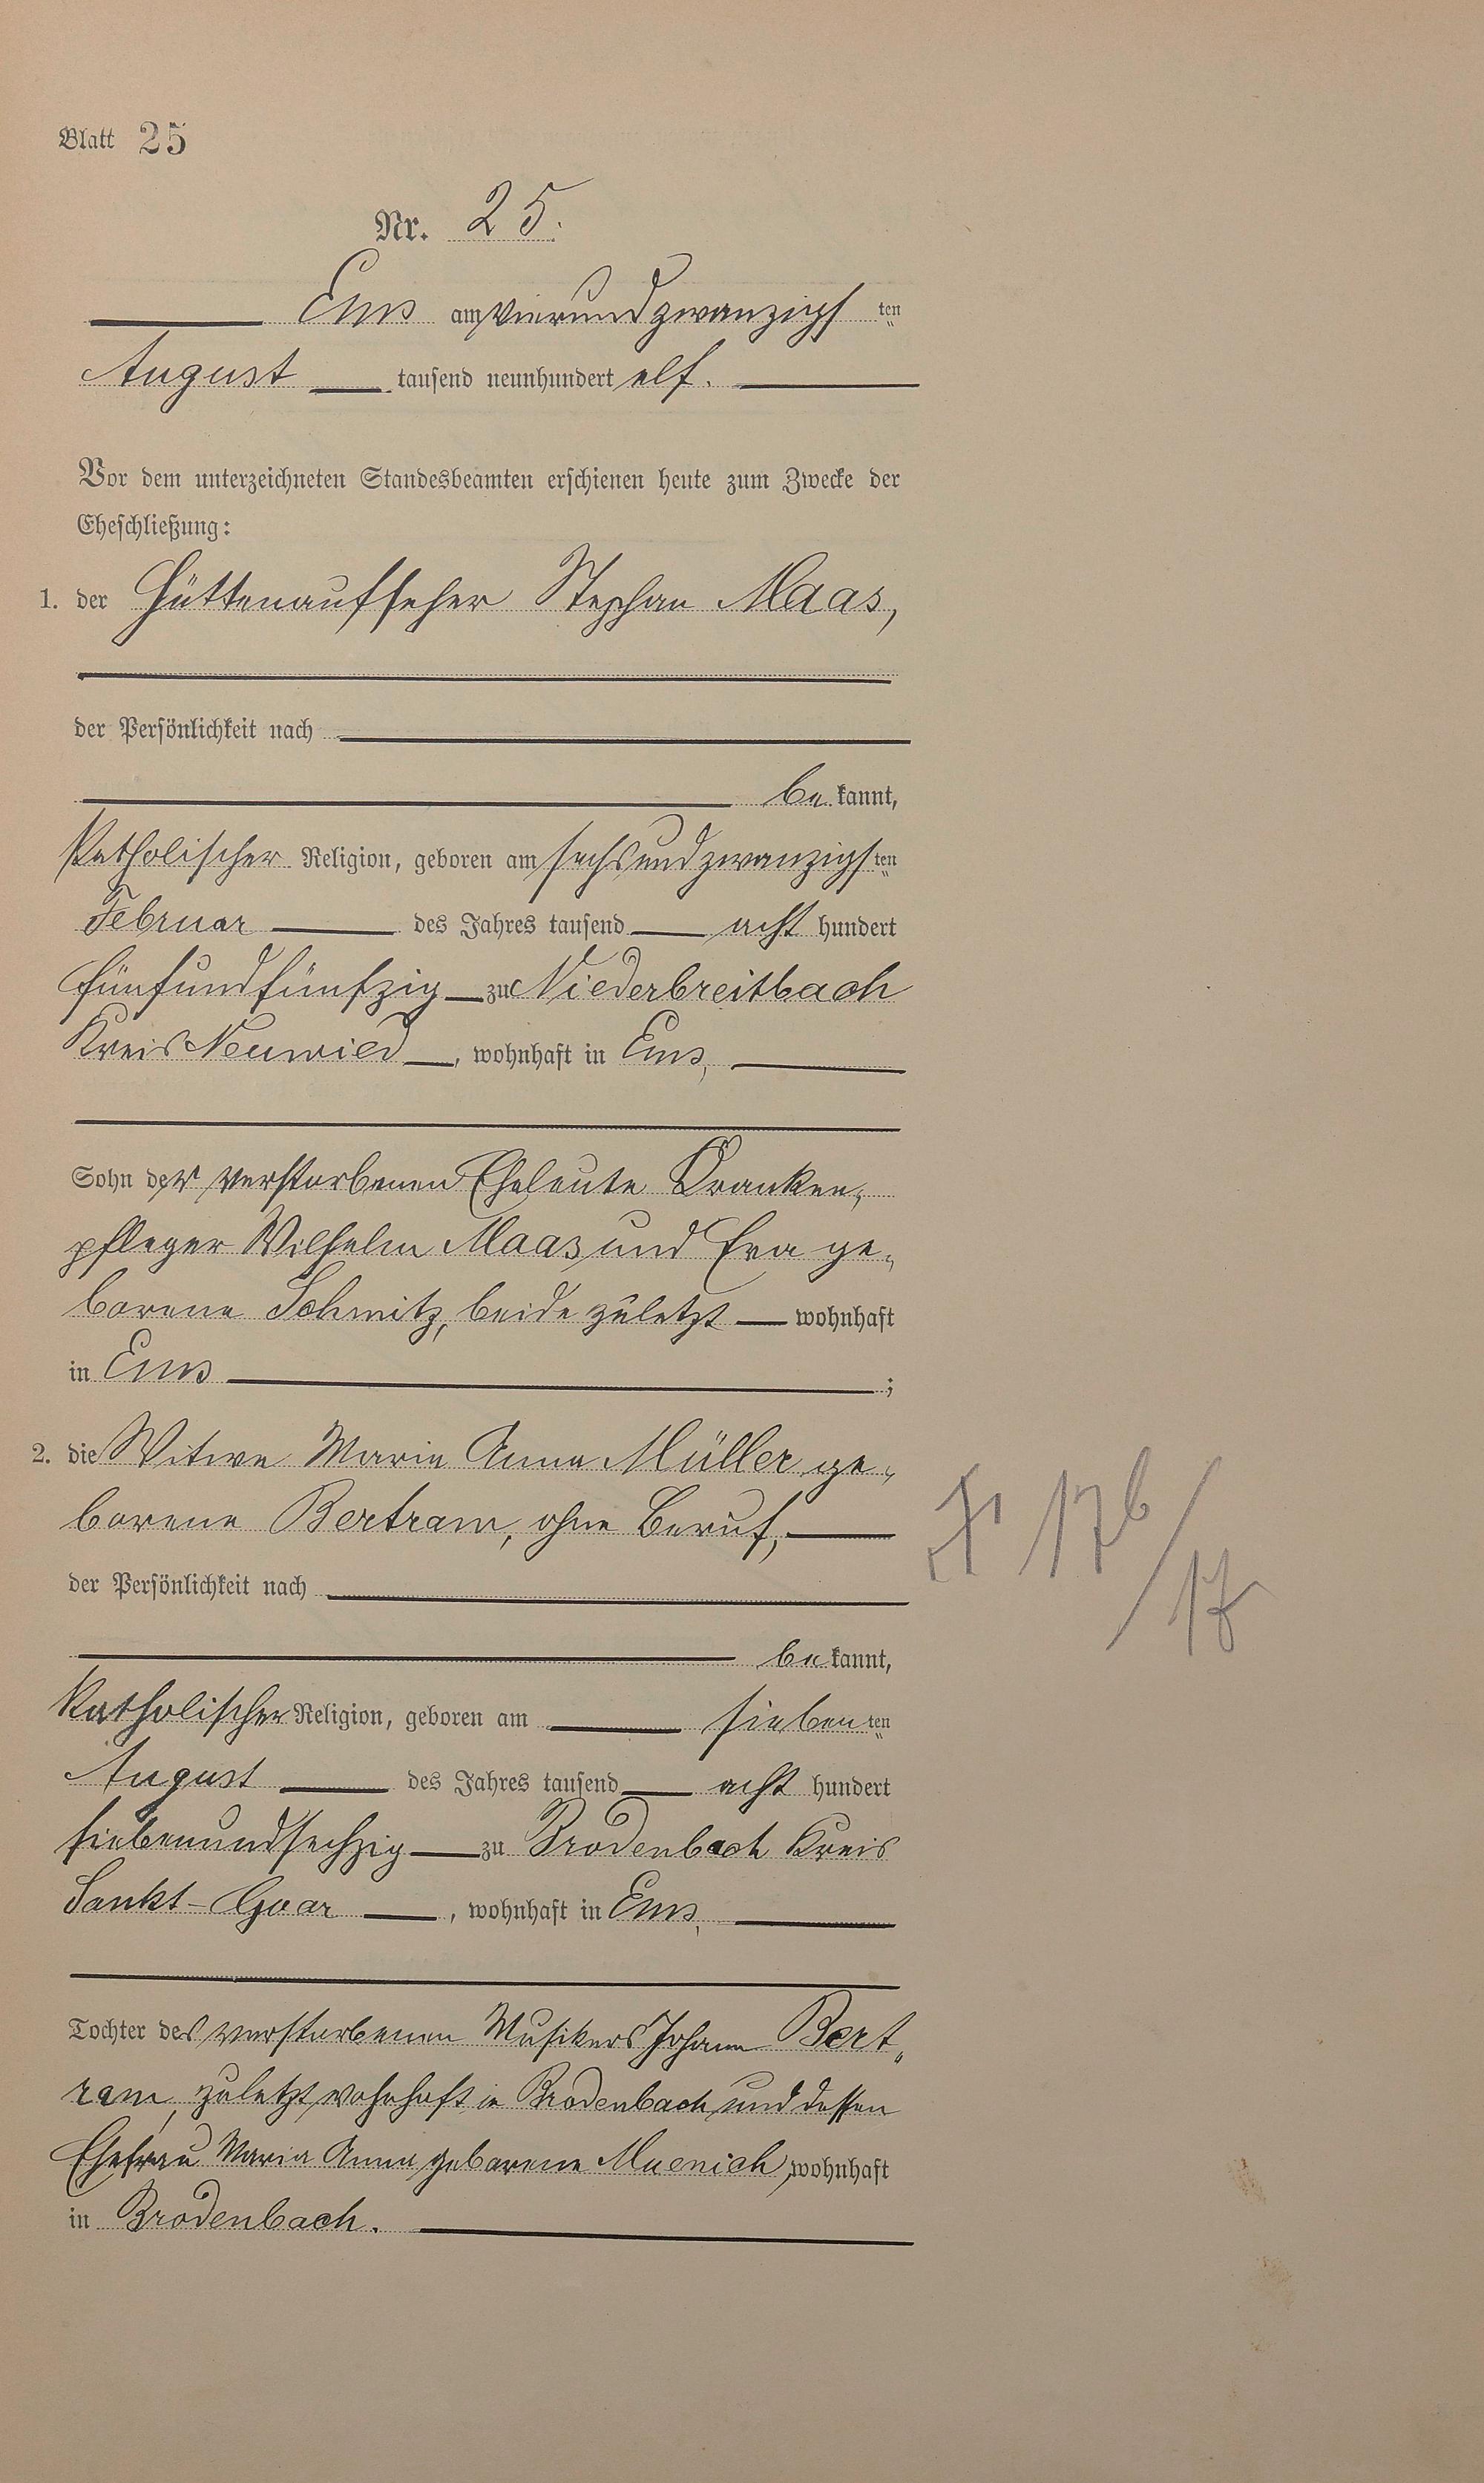 Blatt 25
Nr. 25.
Ems am vierundzwanzigsten
August tausend neunhundert elf.
Vor dem unterzeichneten Standesbeamten erschienen heute zum Zwecke der
Eheschließung:
1. der Hüttenaufseher Stephan Maas,
der Persönlichkeit nach
bekannt,
katholischer Religion, geboren am sechsundzwanzigsten
Februar des Jahres tausend acht hundert
fünfundfünfzig zu Niederbreitbach
Kreis Neuwied, wohnhaft in Ems,
Sohn der verstorbenen Eheleute Kranken-
pfleger Wilhelm Maas und Eva ge-
borene Schmitz, beide zuletzt wohnhaft
in Ems;
2. die Witwe Maria Anna Müller ge-
borene Bertram, ohne Beruf,
der Persönlichkeit nach
bekannt,
katholischer Religion, geboren am siebenten
August des Jahres tausend acht hundert
siebenundsechzig zu Brodenbach Kreis
Sankt-Goar, wohnhaft in Ems,
Tochter des verstorbenen Musikers Johann Bert-
ram, zuletzt wohnhaft in Brodenbach und dessen
Ehefrau Maria Anna geborene Muenich, wohnhaft
in Brodenbach.
17b/17